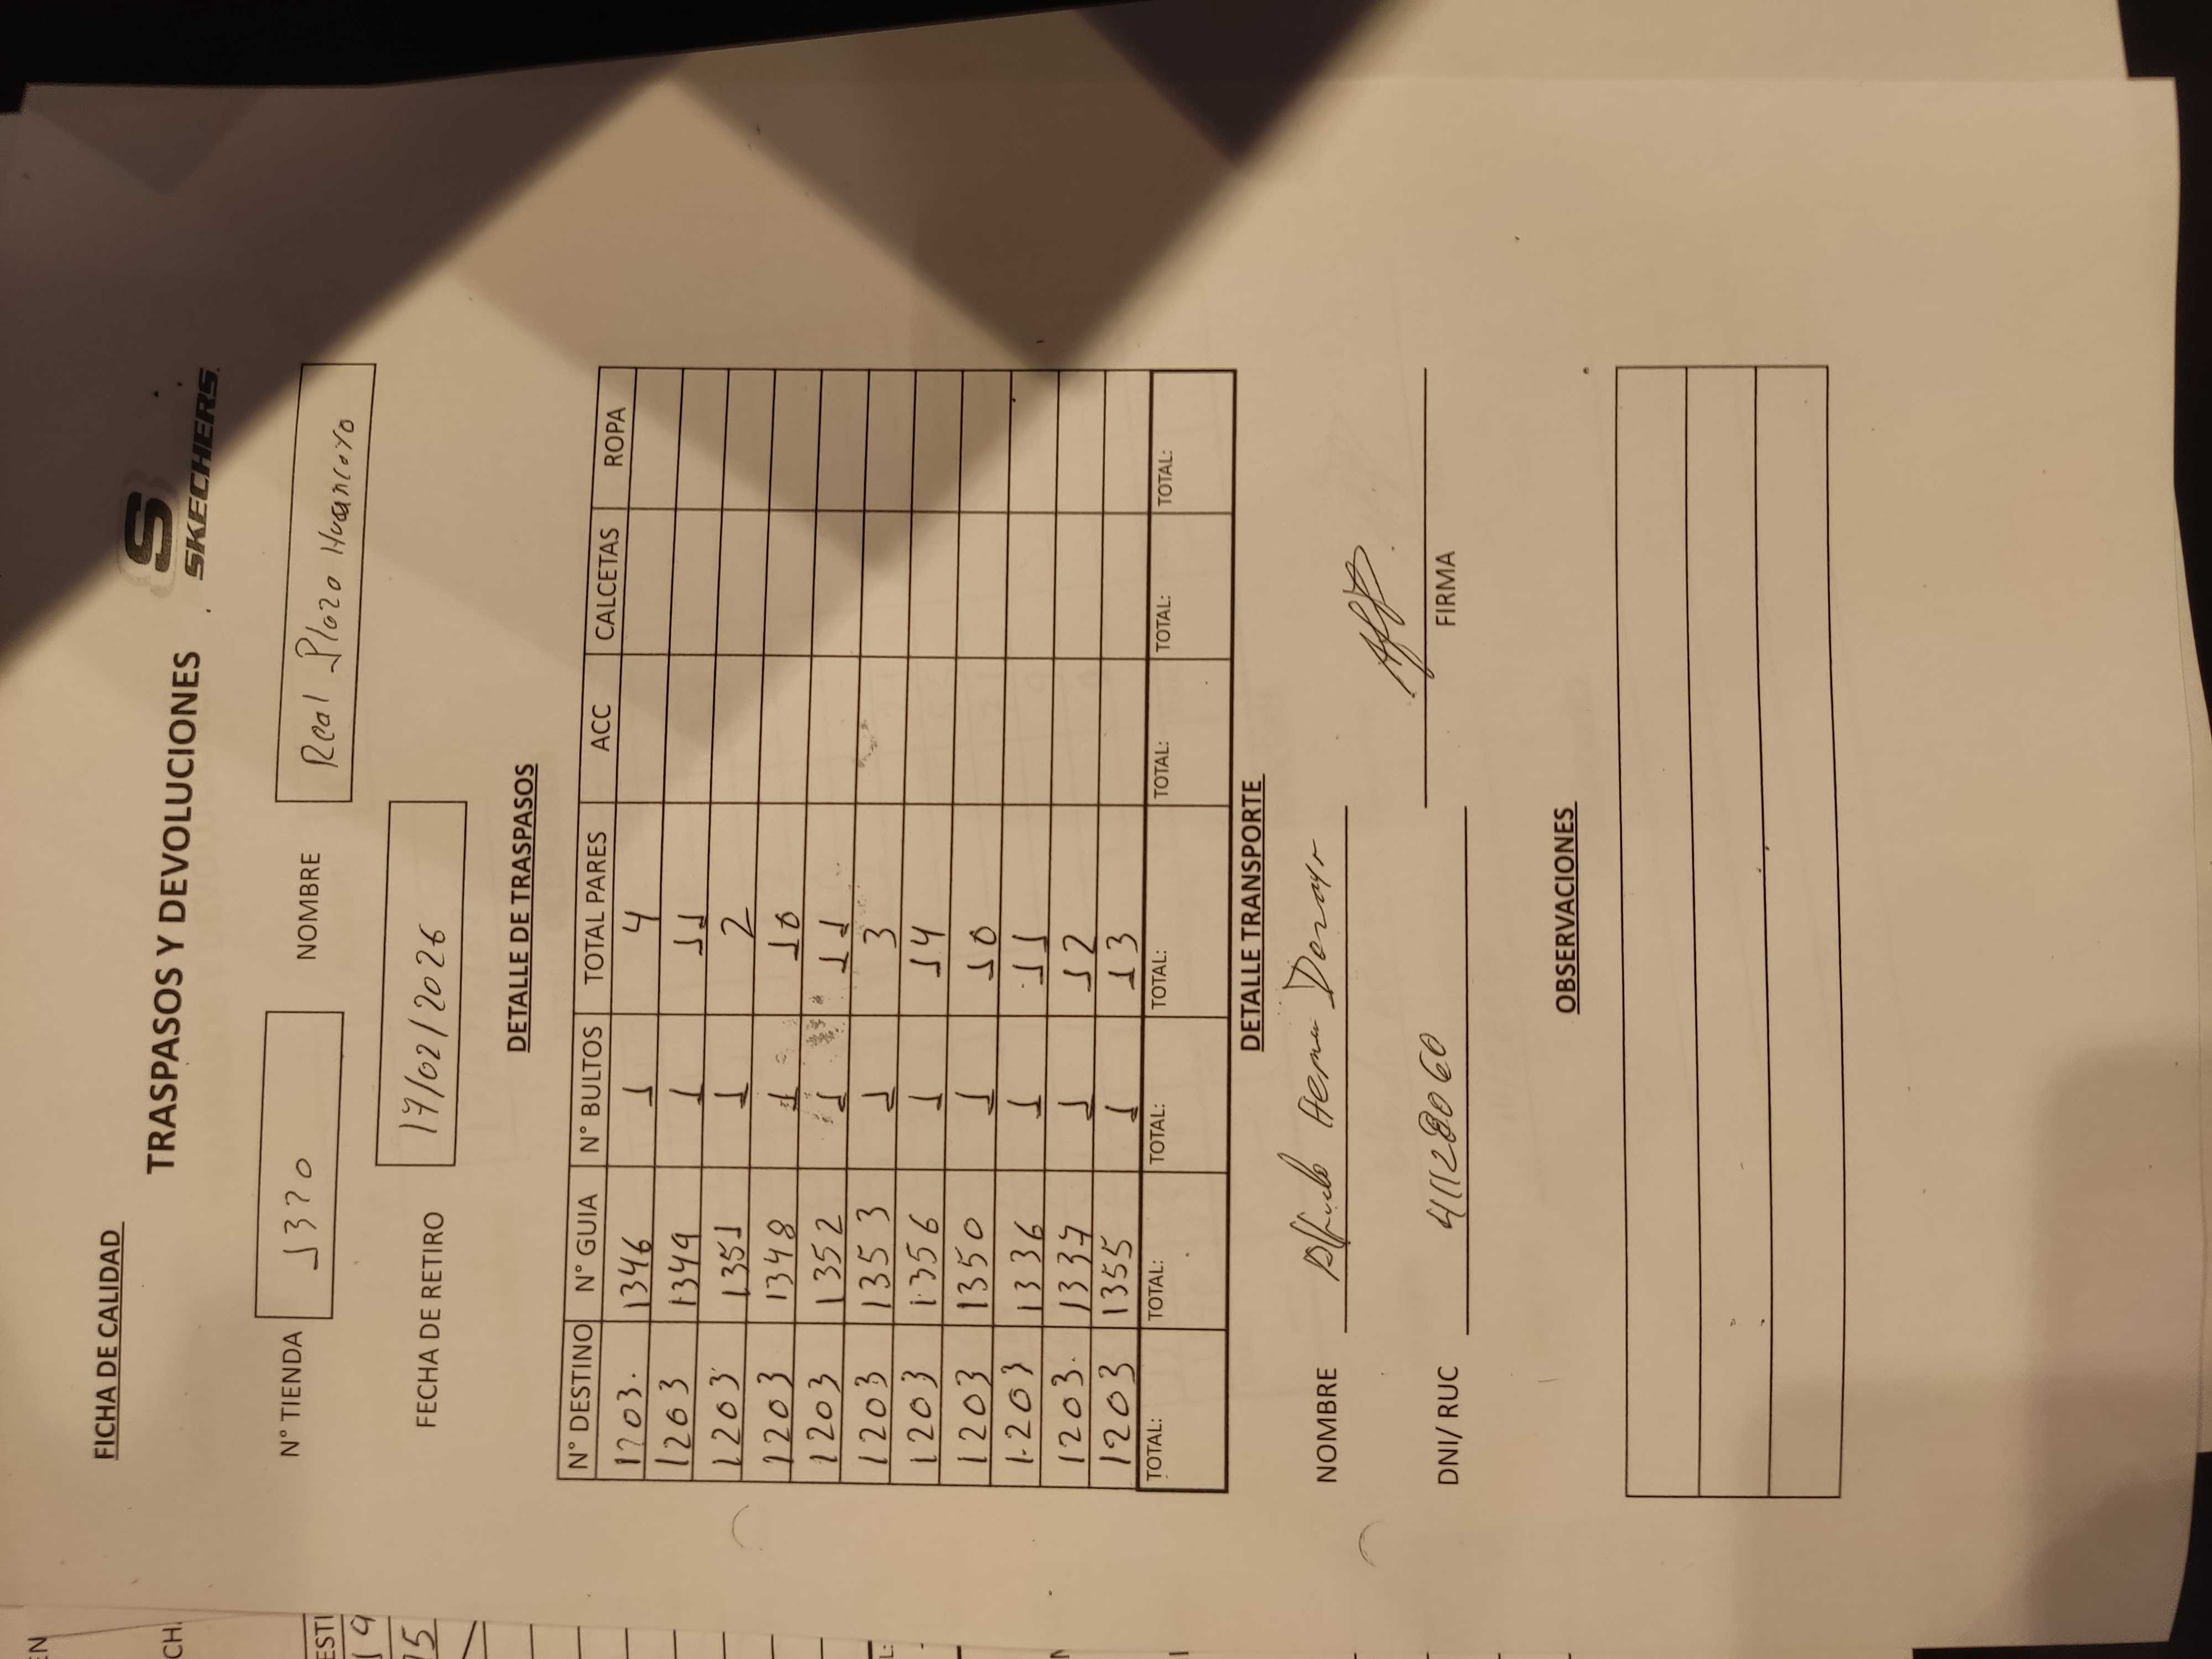 FICHA DE CALIDAD
TRASPASOS Y DEVOLUCIONES
S
SKECHERS
N° TIENDA 1370 NOMBRE Real Plaza Huancayo
FECHA DE RETIRO 17/02/2026
DETALLE DE TRASPASOS
N° DESTINO N° GUIA N° BULTOS TOTAL PARES ACC CALCETAS ROPA
1203. 1346 1 4
1203 1349 1 11
1203 1351 1 2
1203 1348 1 10
1203 1352 1 11
1203 1353 1 3
1203 1356 1 14
1203 1350 1 10
1203 1336 1 11
1203. 1337 1 12
1203 1355 1 13
TOTAL: TOTAL: TOTAL: TOTAL: TOTAL: TOTAL: TOTAL:
DETALLE TRANSPORTE
NOMBRE
DNI/ RUC 41128060 FIRMA
OBSERVACIONES
EN
CH
ESTI
19
15